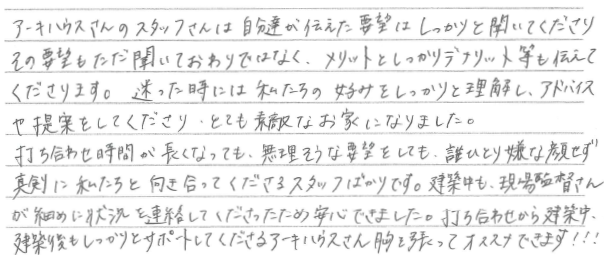 アーキハウスさんのスタッフさんは自分達が伝えた要望はしっかりと聞いてくださり
その要望もただ聞いておわりではなく、メリットとしっかりデメリット等も伝えて
くださります。迷った時には私たちの好みをしっかりと理解し、アドバイス
や提案をしてくださり、とても素敵なお家になりました。
打ち合わせ時間が長くなっても、無理そうな要望をしても、誰ひとり嫌な顔せず
真剣に私たちと向き合ってくださるスタッフばかりです。建築中も、現場監督さん
が細めに状況を連絡してくださったため安心できました。打ち合わせから建築中、
建築後もしっかりとサポートしてくださるアーキハウスさん胸を張ってオススメできます!!!